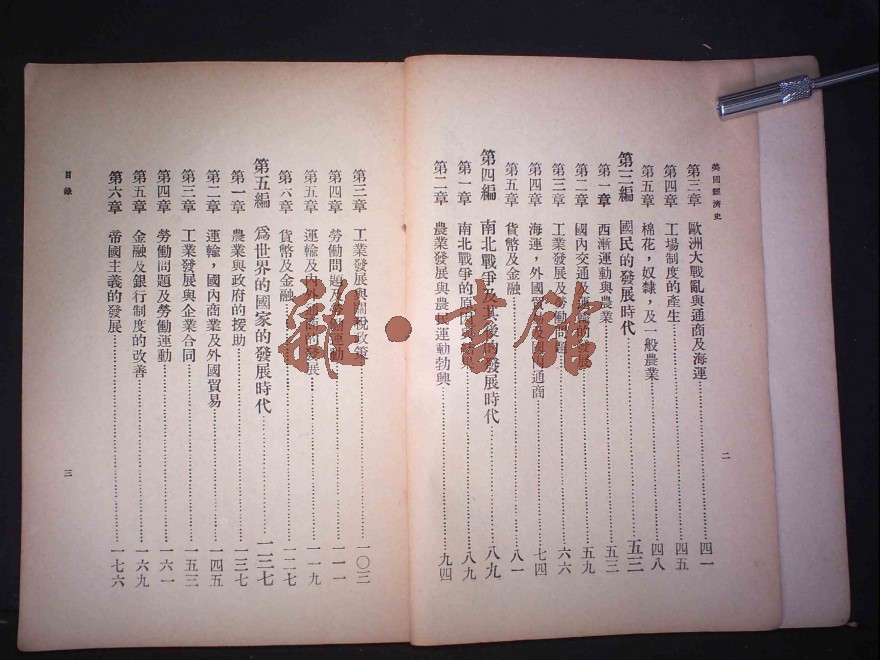 英國經濟史
第三章 歐洲大戰亂與通商及海運 四一
第四章 工場制度的產生 四五
第五章 棉花，奴隸，及一般農業 四八
第三編 國民的發展時代 五三
第一章 西漸運動與農業 五三
第二章 國內交通及運輸的發展 五九
第三章 工業發展及勞働問題 六六
第四章 海運，外國貿易及國內通商 七四
第五章 貨幣及金融 八一
第四編 南北戰爭及其後的發展時代 八九
第一章 南北戰爭的原因與結果 八九
第二章 農業發展與農民運動勃興 九四
二
第三章 工業發展與關稅政策 一〇三
第四章 勞働問題及勞働運動 一一一
第五章 運輸及內外通商的發展 一一九
第六章 貨幣及金融 一二七
第五編 為世界的國家的發展時代 一三七
第一章 農業與政府的援助 一三七
第二章 運輸，國內商業及外國貿易 一四五
第三章 工業發展與企業合同 一五三
第四章 勞働問題及勞働運動 一六一
第五章 金融及銀行制度的改善 一六九
第六章 帝國主義的發展 一七六
目錄
三
書館